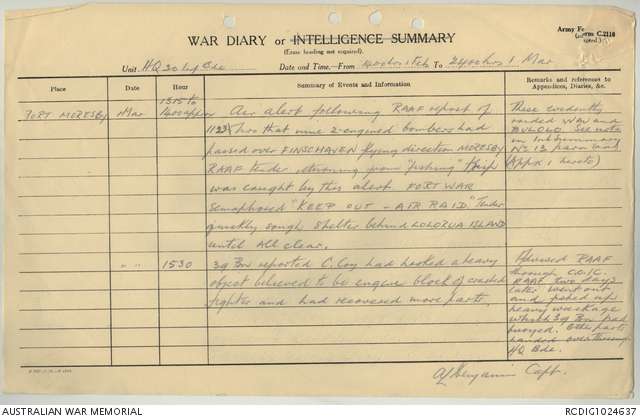 WAR DIARY or INTELLIGENCE SUMMARY
(Erase heading not required).
Army Fo
C.2118
Unit HQ 30 Inf Bde
Date and Time—From
To 2400hrs 1 Mar
Place
Date
Hour
Summary of Events and Information
Remarks and references to
Appendices, Diaries, &c.
1315 to
PORT MORESBY
Mar
Air alert following RAAF report of
hrs that nine 2-engined bombers had
passed over FINSCHAVEN flying direction MORESBY
RAAF tender returning from "fishing" trip
was caught by this alert. PORT WAR
semaphored "KEEP OUT - AIR RAID". Tender
quickly sough shelter behind LOLORUA ISLAND
until All clear.
These evidently
raided WAU and
BULOLO. See note
in Int. Summary
No 13 para
(Appx 1 hereto)
" "
1530
39 Bn reported C. Coy had hooked a heavy
object believed to be engine block of crashed
fighter and had recovered more parts.
Advised RAAF
through C.O.I.C.
RAAF two days
later went out
and picked up
heavy wreckage
which 39 Bn had
buoyed. Other parts
handed over through
HQ Bde.
Capt.
AUSTRALIAN WAR MEMORIAL
RCDIG1024637